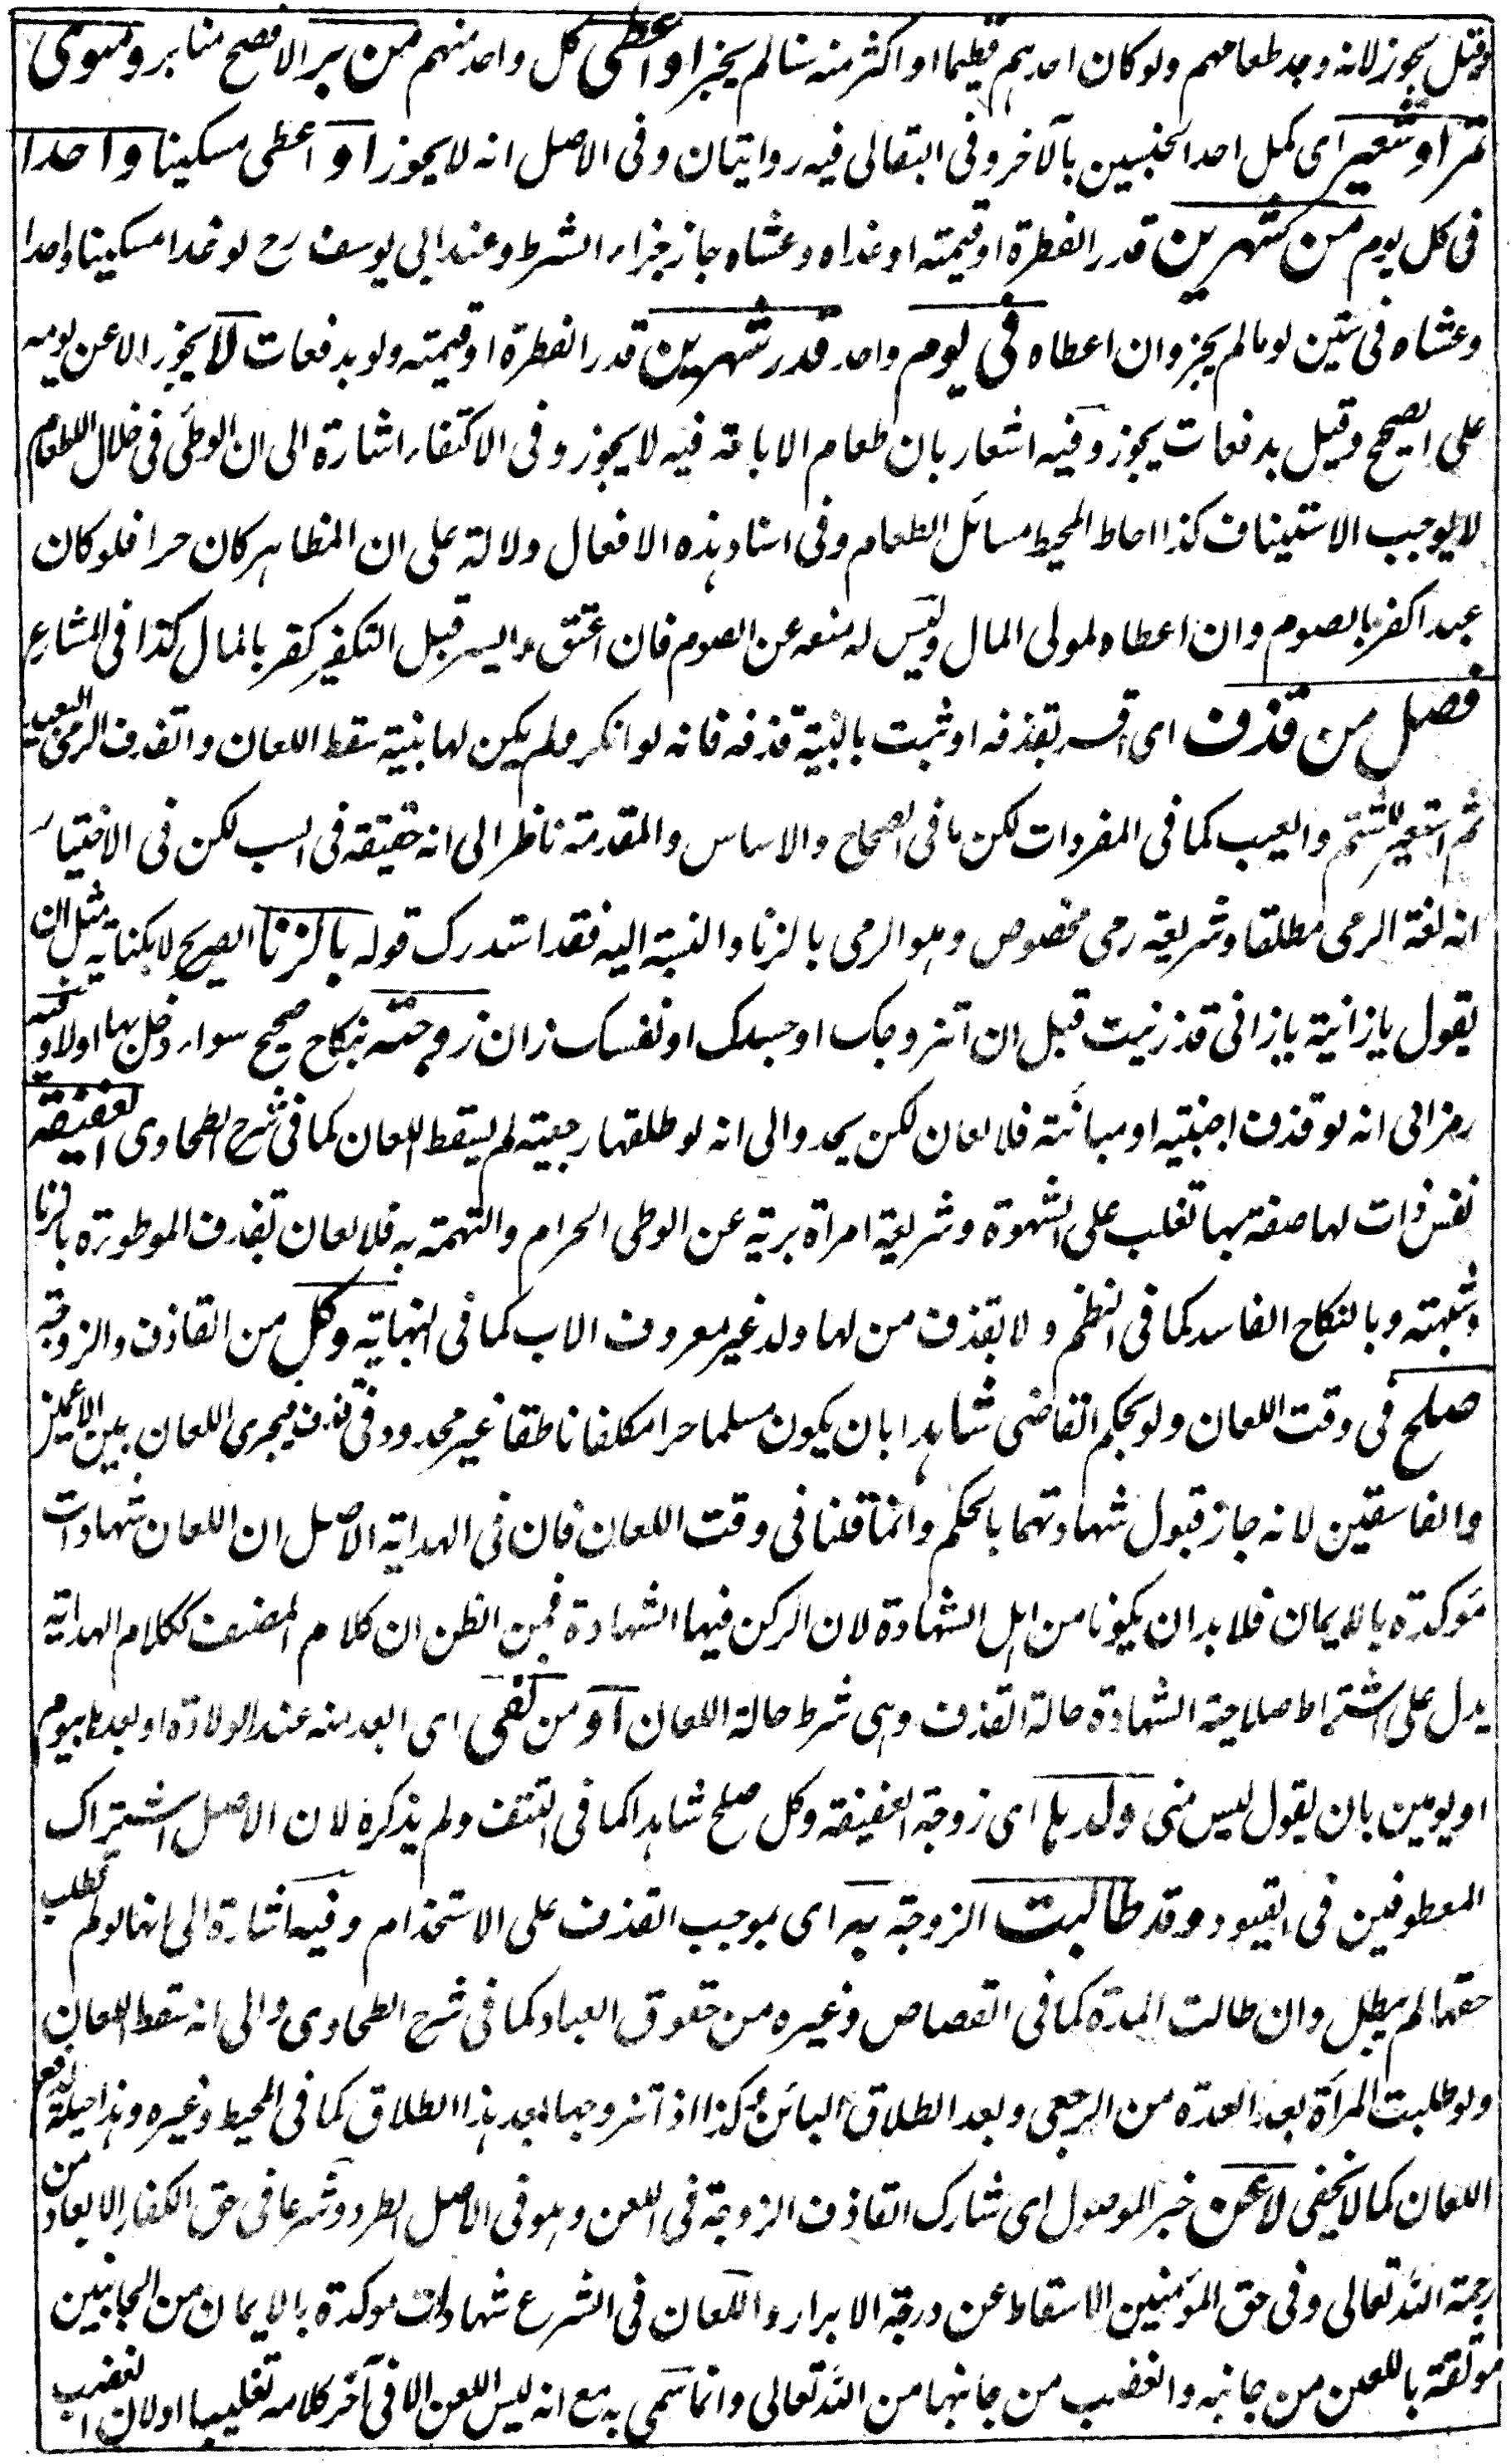 وقيل يجوز لانه وجد طعامهم ولو كان احدهم فطيما او اكثر منه سنا لم يجز او اعطى كل واحد منهم من بر الافصح منا بر ومنوى
تمر او شعير اى كمل احد الجنسين بالآخر وفى البقالى فيه روايتان وفى الاصل انه لا يجوز او اعطى مسكينا واحدا
فى كل يوم من شهرين قدر الفطرة او قيمته او غداه وعشاه جاز جزاء الشرط وعند ابى يوسف رح لو غدا مسكينا واحدا
وعشاه فى ستين يوما لم يجز وان اعطاه فى يوم واحد قدر شهرين قدر الفطرة او قيمته ولو بدفعات لا يجوز الا عن يومه
على الصحيح وقيل بدفعات يجوز وفيه اشعار بان طعام الاباحة فيه لا يجوز وفى الاكتفاء اشارة الى ان الوطئ فى خلال الطعام
لا يوجب الاستيناف كذا احاط المحيط مسائل الطعام وفى اسناد هذه الافعال دلالة على ان المظاهر كان حرا فلو كان
عبدا كفر بالصوم وان اعطاه لمولى المال وليس له منعه عن الصوم فان اعتق وايسر قبل التكفير كفر بالمال كذا فى المشارع
فصل من قذف اى اقر بقذفه او ثبت بالبينة قذفه فانه لو انكر ولم يكن لها بينة سقط اللعان والقذف الرمى البعيد
ثم استعير للشتم والعيب كما فى المفردات لكن ما فى الصحاح والاساس والمقدمة ناظر الى انه حقيقة فى السب لكن فى الاختيار
انه لغة الرمى مطلقا وشريعة رمى مخصوص وهو الرمى بالزنا والنسبة اليه فقد استدرك قوله بالزنا الصريح لا بكناية مثل ان
يقول يا زانية يا زانى قد زنيت قبل ان اتزوجك او جسدك او نفسك زان زوجته بنكاح صحيح سواء دخل بها اولا وفيه
رمز الى انه لو قذف اجنبية او مبانة فلا لعان لكن يحد والى انه لو طلقها رجعية لم يسقط اللعان كما فى شرح الطحاوى العفيفة
نفس ذات لها صفة بها تغلب على الشهوة وشريعة امراة برية عن الوطى الحرام والتهمة به فلا لعان بقذف الموطوءة بالزنا
وشبهته وبالنكاح الفاسد كما فى النظم ولا بقذف من لها ولد غير معروف الاب كما فى النهاية وكل من القاذف والزوجة
صلح فى وقت اللعان ولو بحكم القاضى شاهدا بان يكون مسلما حرا مكلفا ناطقا غير محدود فى قذف فيجرى اللعان بين الاعميين
والفاسقين لانه جاز قبول شهادتهما بالحكم وانما قلنا فى وقت اللعان فان فى الهداية الاصل ان اللعان شهادات
موكدة بالايمان فلا بد ان يكونا من اهل الشهادة لان الركن فيها الشهادة فمن الظن ان كلام المصنف ككلام الهداية
يدل على اشتراط صلاحية الشهادة حالة القذف وهى شرط حالة اللعان او من نفى اى ابعد منه عند الولادة او بعدها بيوم
او يومين بان يقول ليس منى ولدها اى زوجة العفيفة وكل صلح شاهدا كما فى النتف ولم يذكره لان الاصل اشتراك
المعطوفين فى القيود وقد طالبت الزوجة به اى بموجب القذف على الاستخدام وفيه اشارة الى انها لو لم تطلب
حقها لم يبطل وان طالت المدة كما فى القصاص وغيره من حقوق العباد كما فى شرح الطحاوى والى انه سقط اللعان
ولو طلبت المراة بعد العدة من الرجعى وبعد الطلاق البائن وكذا اذا تزوجها بعد هذا الطلاق كما فى المحيط وغيره وهذا حيلة لدفع
اللعان كما لا يخفى لاعن خبر الموصول اى شارك القاذف الزوجة فى اللعن وهو فى الاصل الطرد وشرعا فى حق الكفار الابعاد من
رحمة الله تعالى وفى حق المؤمنين الاسقاط عن درجة الابرار واللعان فى الشرع شهادات موكدة بالايمان من الجانبين
موثقة باللعن من جانبه والغضب من جانبها من الله تعالى وانما سمى به مع انه ليس اللعن الا فى آخر كلامه تغليبا او لان الغضب